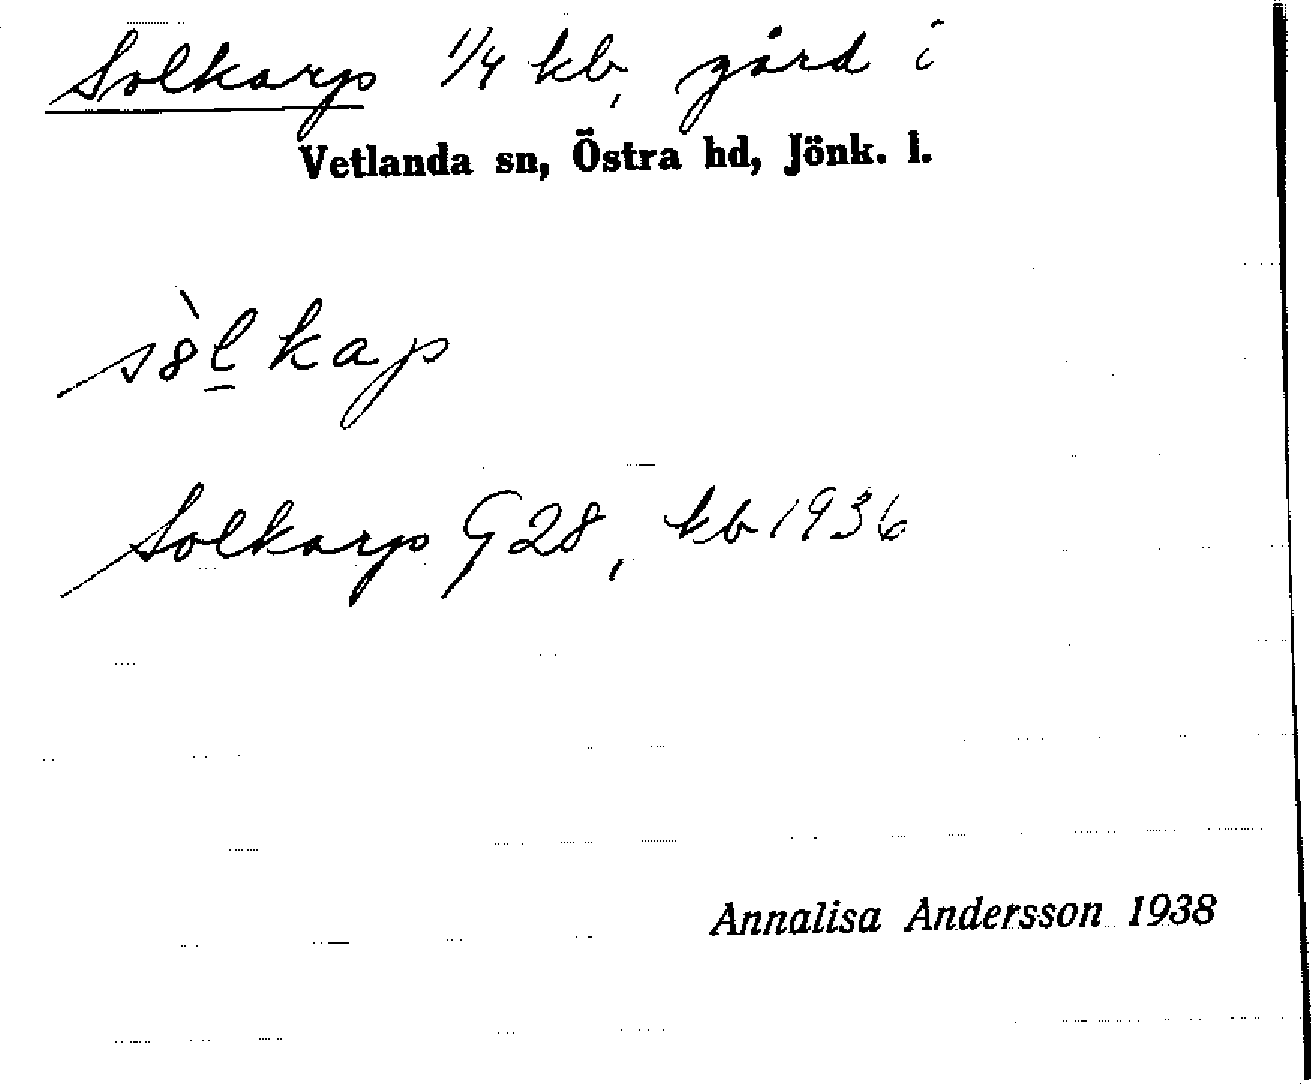 Solkarp 1/4 kb, gård i
Vetlanda sn, Östra hd, Jönk. l.
sòl̲kap
Solkarp G 28, kb 1936
Annalisa Andersson 1938